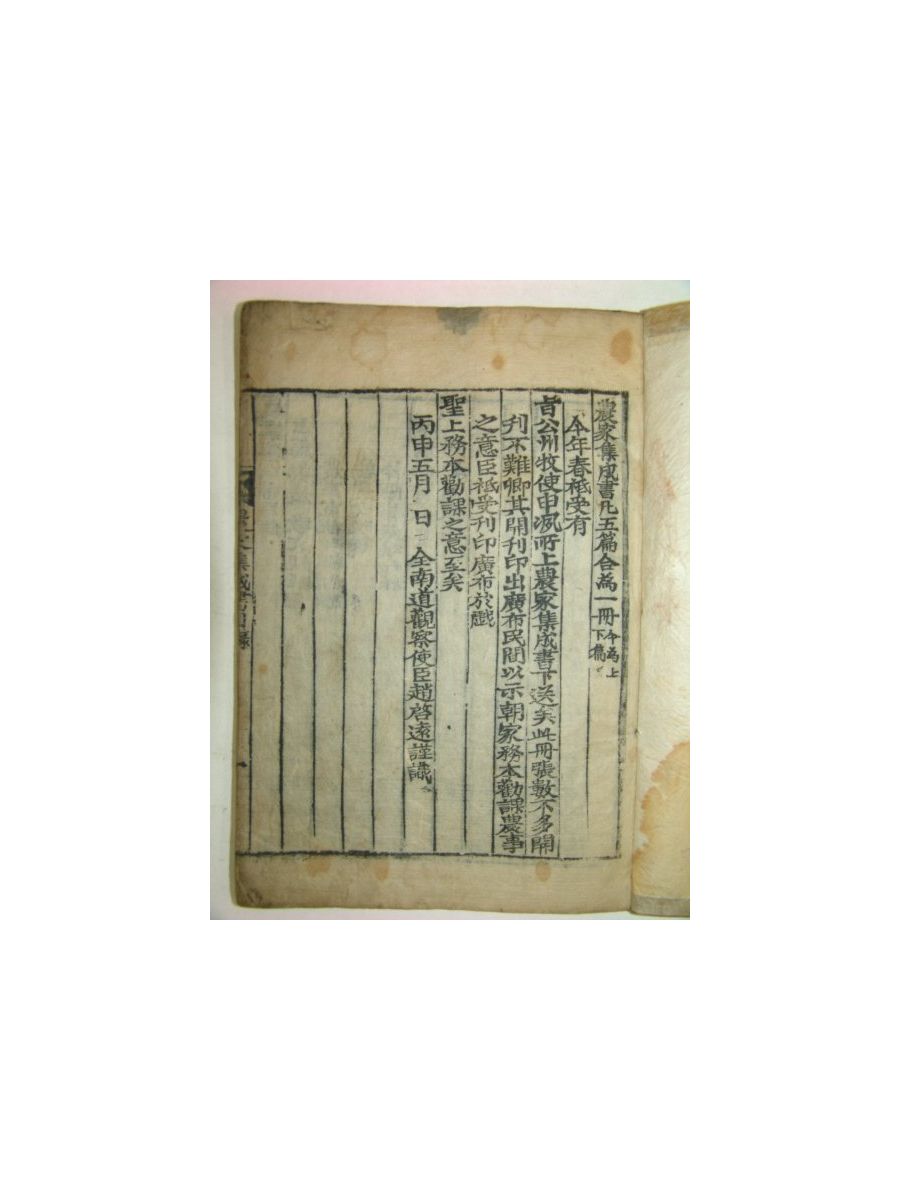 農家集成書凡五篇合為一冊今為上下篇
今年春祗受有
旨公州牧使申洬所上農家集成書下送矣此冊張數不多開
刊不難卿其開刊印出廣布民間以示朝家務本勸課農事
之意臣祗受刊印廣布於戱
聖上務本勸課之意至矣
丙申五月 日 全南道觀察使臣趙啓遠謹識